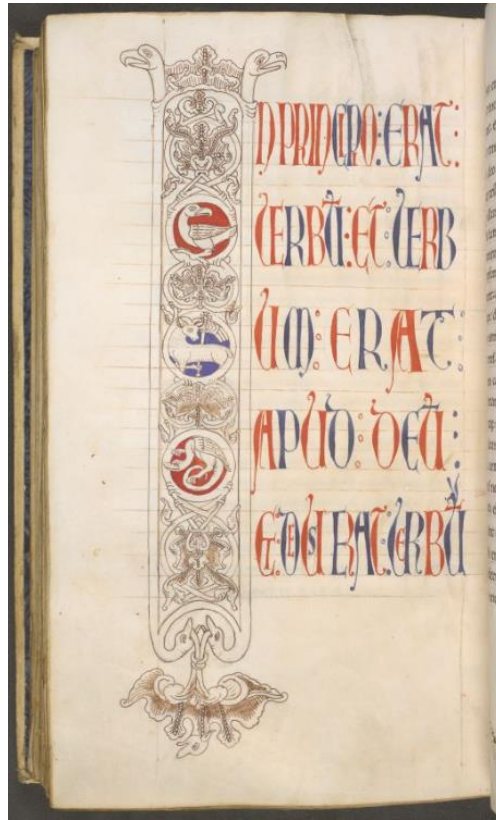 IN PRINCIPIO: ERAT:
UERBŪ: ET: UERB
UM: ERAT:
APUD: DEŪ:
ET: DS ERAT: UERBŪ